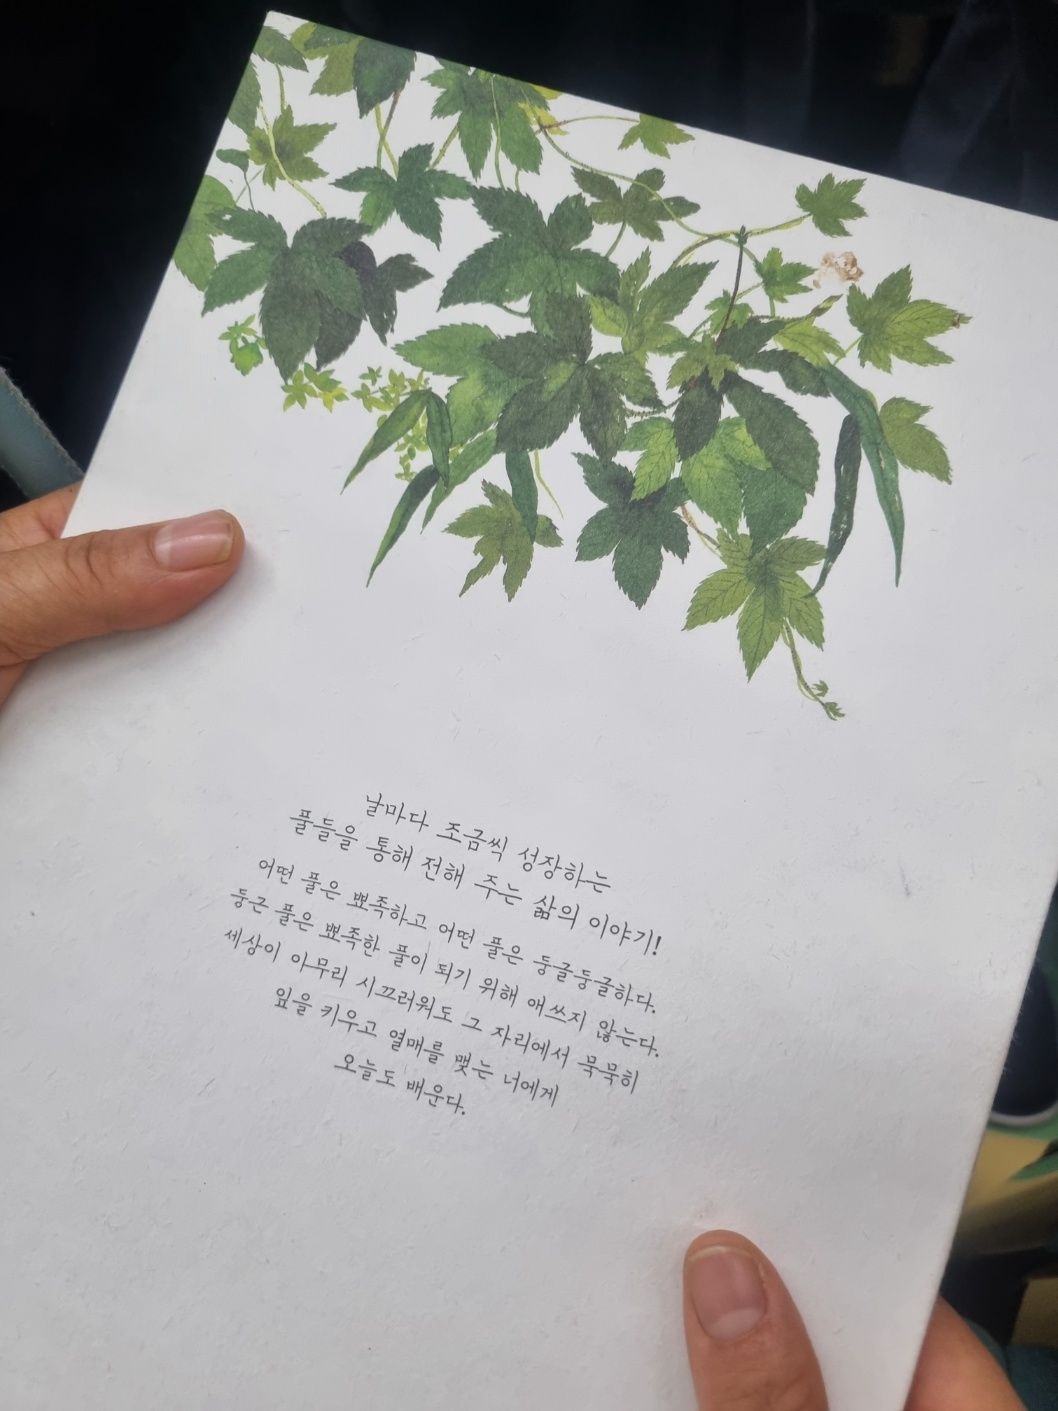 날마다 조금씩 성장하는
풀들을 통해 전해 주는 삶의 이야기!
어떤 풀은 뾰족하고 어떤 풀은 둥글둥글하다.
둥근 풀은 뾰족한 풀이 되기 위해 애쓰지 않는다.
세상이 아무리 시끄러워도 그 자리에서 묵묵히
잎을 키우고 열매를 맺는 너에게
오늘도 배운다.